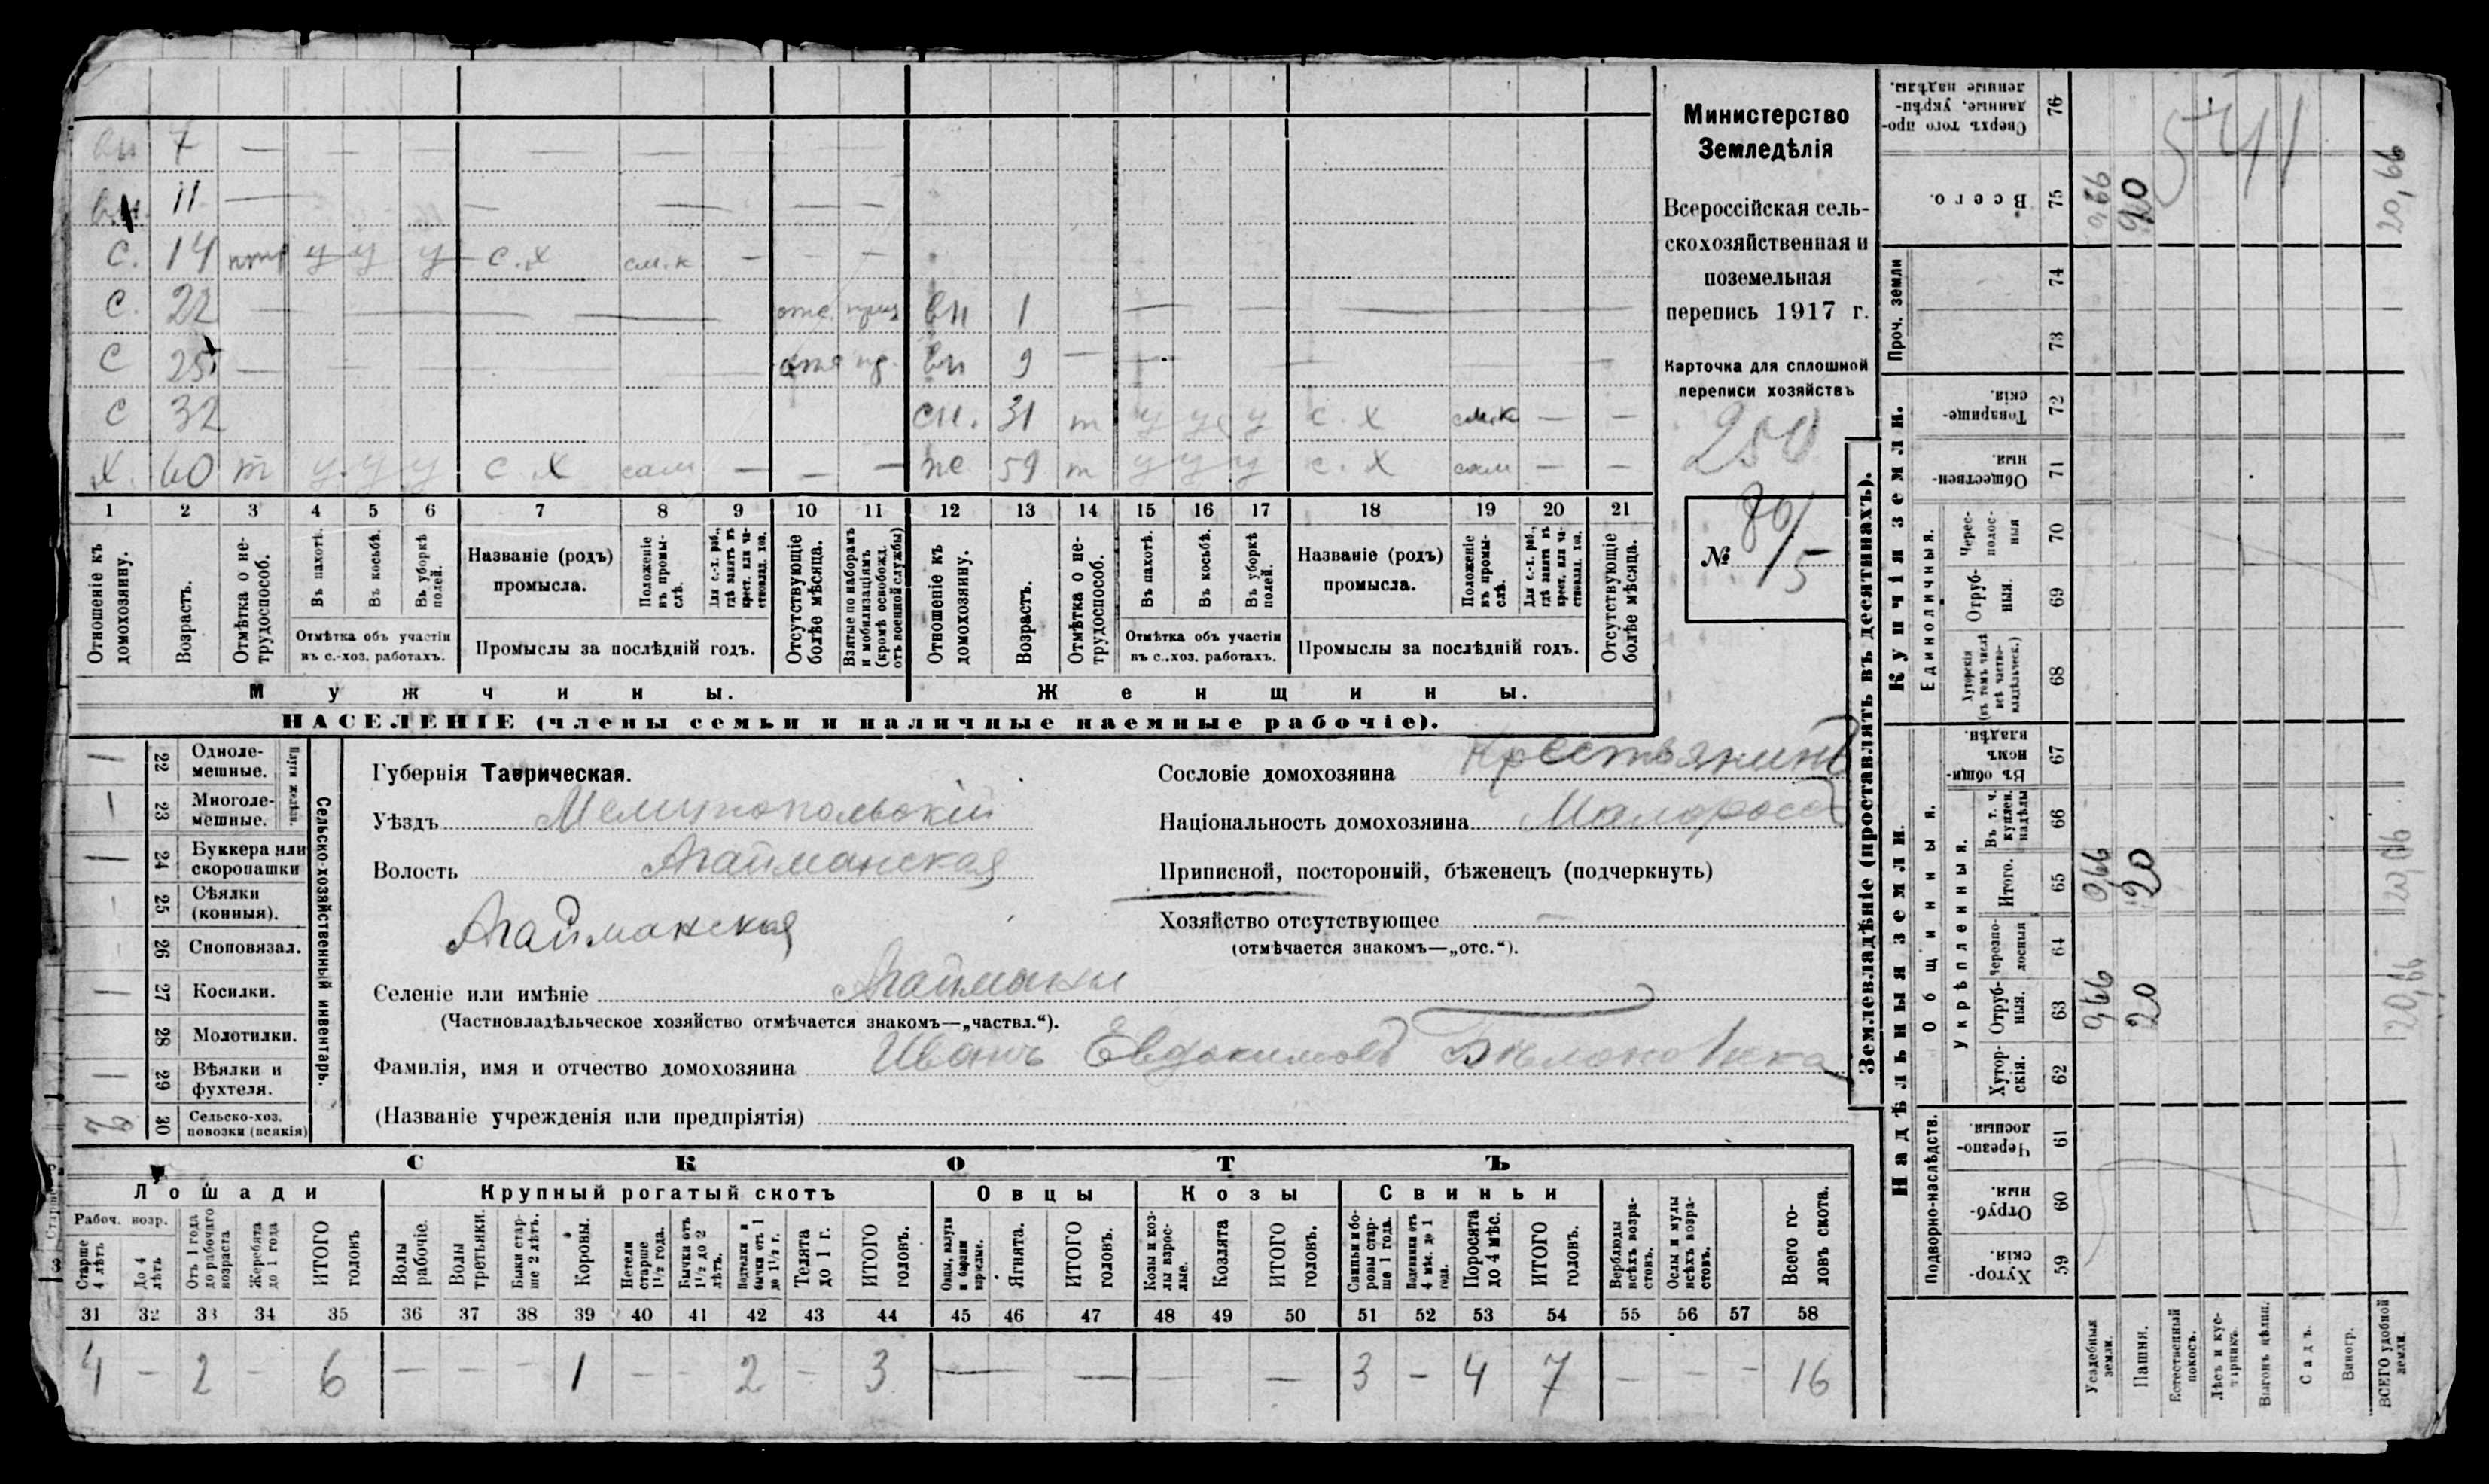 вн 7 — — — — — — — — —
вн. 11 — — — — — —
С. 14 у у у с.х см.к — — —
С. 22 — — — — отс. вн 1 — — — —
С 25 — — — — — — — отс пр. вн 9 — — — — — —
С 32 сн. 31 т у у у с.х см.к — —
Х. 60 т у у у с.х сам — — — же 59 т у у у с.х сам — —
1 2 3 4 5 6 7 8 9 10 11 12 13 14 15 16 17 18 19 20 21
Отношеніе къ домохозяину.
Возрастъ.
Отмѣтка о не-трудоспособ.
Въ пахотѣ.
Въ косьбѣ.
Въ уборкѣ полей.
Отмѣтка объ участіи въ с.-хоз. работахъ.
Названіе (родъ) промысла.
Положеніе въ промы-слѣ.
Для с.-х. раб., гдѣ занятъ въ крест. или ча-ствовлад. хоз.
Промыслы за послѣдній годъ.
Отсутствующіе болѣе мѣсяца.
Взятые по наборамъ и мобилизаціямъ (кромѣ освобожд. отъ военной службы)
Отношеніе къ домохозяину.
Возрастъ.
Отмѣтка о не-трудоспособ.
Въ пахотѣ.
Въ косьбѣ.
Въ уборкѣ полей.
Отмѣтка объ участіи въ с.-хоз. работахъ.
Названіе (родъ) промысла.
Положеніе въ промы-слѣ.
Для с.-х. раб., гдѣ занятъ въ крест. или ча-ствовлад. хоз.
Промыслы за послѣдній годъ.
Отсутствующіе болѣе мѣсяца.
Мужчины. Женщины.
НАСЕЛЕНІЕ (члены семьи и наличные наемные рабочіе).
Министерство
Земледѣлія
Всероссійская сель-
скохозяйственная и
поземельная
перепись 1917 г.
Карточка для сплошной
переписи хозяйствъ
250
№ 80/5
— 22 Одноле-мешные.
Плуги желѣзн.
1 23 Многоле-мешные.
— 24 Буккера или скоропашки
— 25 Сѣялки (конныя).
— 26 Сноповязал.
— 27 Косилки.
— 28 Молотилки.
— 29 Вѣялки и фухтеля.
30 Сельско-хоз. повозки (всякія)
Сельско-хозяйственный инвентарь.
Губернія Таврическая.
Уѣздъ Мелитопольскій
Волость Агайманская
Агайманская
Селеніе или имѣніе Агайманы
(Частновладѣльческое хозяйство отмѣчается знакомъ—„частвл.“).
Фамилія, имя и отчество домохозяина Иванъ Евдокимовъ
(Названіе учрежденія или предпріятія)
Сословіе домохозяина Крестьянинъ
Національность домохозяина Малороссъ
Приписной, посторонній, бѣженецъ (подчеркнуть)
Хозяйство отсутствующее —
(отмѣчается знакомъ—„отс.“).
СКОТЪ
Лошади Крупный рогатый скотъ Овцы Козы Свиньи
Рабоч. возр.
Старше 4 лѣтъ
До 4 лѣтъ
Отъ 1 года до рабочаго возраста
Жеребята до 1 года
ИТОГО головъ
Волы рабочіе.
Волы третьяки.
Быки стар-ше 2 лѣтъ.
Коровы.
Нетели старше 1½ года.
Бычки отъ 1½ до 2 лѣтъ.
Нетелки и бычки отъ 1 до 1½ г.
Телята до 1 г.
ИТОГО головъ.
Овцы, валухи и бараны взрослые.
Ягнята.
ИТОГО головъ.
Козы и коз-лы взрос-лые.
Козлята
ИТОГО головъ.
Свиньи и бо-ровы стар-ше 1 года.
Подсвинки отъ 4 мѣс. до 1 года.
Поросята до 4 мѣс.
ИТОГО головъ.
Верблюды всѣхъ возра-стовъ.
Ослы и мулы всѣхъ возра-стовъ.
Всего го-ловъ скота.
31 32 33 34 35 36 37 38 39 40 41 42 43 44 45 46 47 48 49 50 51 52 53 54 55 56 57 58
4 — 2 — 6 — — — 1 — — 2 — 3 — — — — 3 — 4 7 — — — 16
Землевладѣніе (проставлять въ десятинахъ).
Надѣльныя земли. Купчія земли. Проч. земли
Подворно-наслѣдств. Общинныя. Единоличныя.
Укрѣпленныя.
Хутор-скія. 59
Отруб-ныя. 60
Черезпо-лосныя. 61
Хутор-скія. 62
Отруб-ныя. 63
Черезпо-лосныя 64
Итого. 65
Въ т. ч. куплен. надѣлы 66
Въ общи-номъ владѣн. 67
Хуторскія (въ томъ числѣ всѣ частно-владѣльческ.) 68
Отруб-ныя. 69
Черес-полос-ныя 70
Обществен-ныя. 71
Товарище-скія. 72
73
74
Всего. 75
Сверхъ того про-данные, укрѣп-ленные надѣлы. 76
Усадебныя земли. 0,66 0,66 0,66
Пашня. 20 20 20
Естественный покосъ.
Лѣсъ и кус-тарникъ.
Выгонъ цѣлин.
Садъ.
Виногр.
ВСЕГО удобной земли. 20,66 20,66 20,66
541